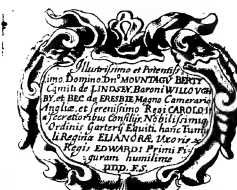 Illustrissimo et Potentiss
simo Domino Dnº MOVNTAGV BERTY
Comiti de LINDSEY, Baroni WILLOVGH
BY, et BEC de ERESBIE Magno Camerario
Angliæ, et serenissimo Regi CAROLO I
a secretioribus Consilijs, Nobilissimiq
Ordinis Garterij Equiti, hanc Tumu
li Reginæ ELIANORÆ, Uxoris
Regis EDWARDI Primi Fi
guram humilime
DDD. F.S.